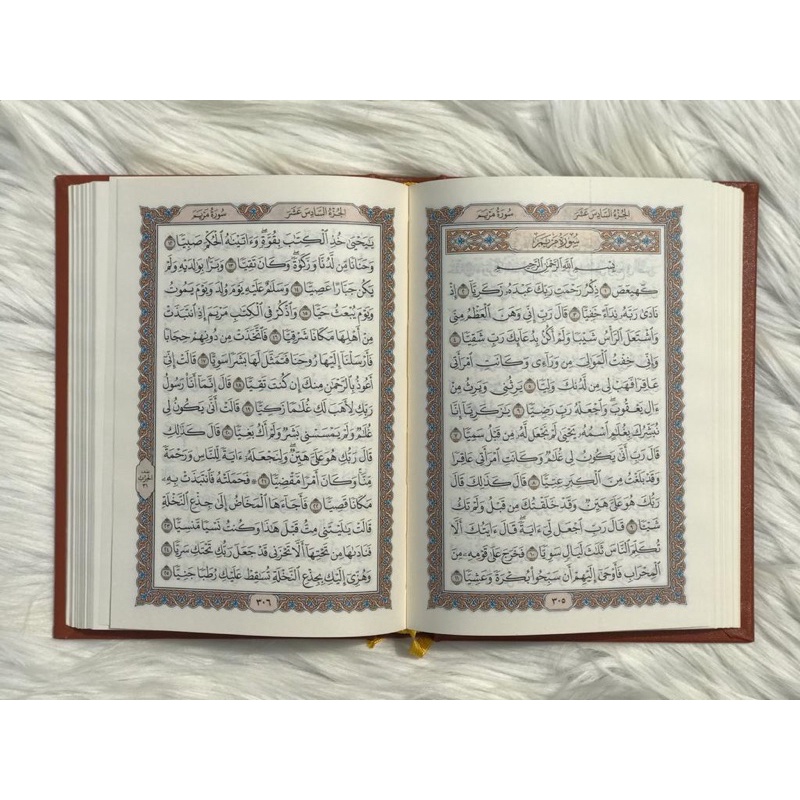 الجزء السادس عشر سورة مريم
سورة مريم
بسم الله الرحمن الرحيم
كهيعص ١ ذكر رحمت ربك عبده زكريا ٢ إذ
نادى ربه نداء خفيا ٣ قال رب إني وهن العظم مني
واشتعل الرأس شيبا ولم أكن بدعائك رب شقيا ٤
وإني خفت الموالي من وراءي وكانت امرأتي
عاقرا فهب لي من لدنك وليا ٥ يرثني ويرث من
ءال يعقوب واجعله رب رضيا ٦ يزكريا إنا
نبشرك بغلم اسمه يحيى لم نجعل له من قبل سميا ٧
قال رب أنى يكون لي غلم وكانت امرأتي عاقرا
وقد بلغت من الكبر عتيا ٨ قال كذلك قال
ربك هو علي هين وقد خلقتك من قبل ولم تك
شيئا ٩ قال رب اجعل لي ءاية قال ءايتك ألا
تكلم الناس ثلث ليال سويا ١٠ فخرج على قومه من
المحراب فأوحى إليهم أن سبحوا بكرة وعشيا ١١
٣٠٥
الجزء السادس عشر سورة مريم
ييحيى خذ الكتب بقوة وءاتينه الحكم صبيا ١٢
وحنانا من لدنا وزكوة وكان تقيا ١٣ وبرا بولديه ولم
يكن جبارا عصيا ١٤ وسلم عليه يوم ولد ويوم يموت
ويوم يبعث حيا ١٥ واذكر في الكتب مريم إذ انتبذت
من أهلها مكانا شرقيا ١٦ فاتخذت من دونهم حجابا
فأرسلنا إليها روحنا فتمثل لها بشرا سويا ١٧ قالت إني
أعوذ بالرحمن منك إن كنت تقيا ١٨ قال إنما أنا رسول
ربك لأهب لك غلما زكيا ١٩ قالت أنى يكون لي
غلم ولم يمسسني بشر ولم أك بغيا ٢٠ قال كذلك
قال ربك هو علي هين ولنجعله ءاية للناس ورحمة
منا وكان أمرا مقضيا ٢١ فحملته فانتبذت به
مكانا قصيا ٢٢ فأجاءها المخاض إلى جذع النخلة
قالت يليتني مت قبل هذا وكنت نسيا منسيا ٢٣
فنادىها من تحتها ألا تحزني قد جعل ربك تحتك سريا ٢٤
وهزي إليك بجذع النخلة تسقط عليك رطبا جنيا ٢٥
٣٠٦